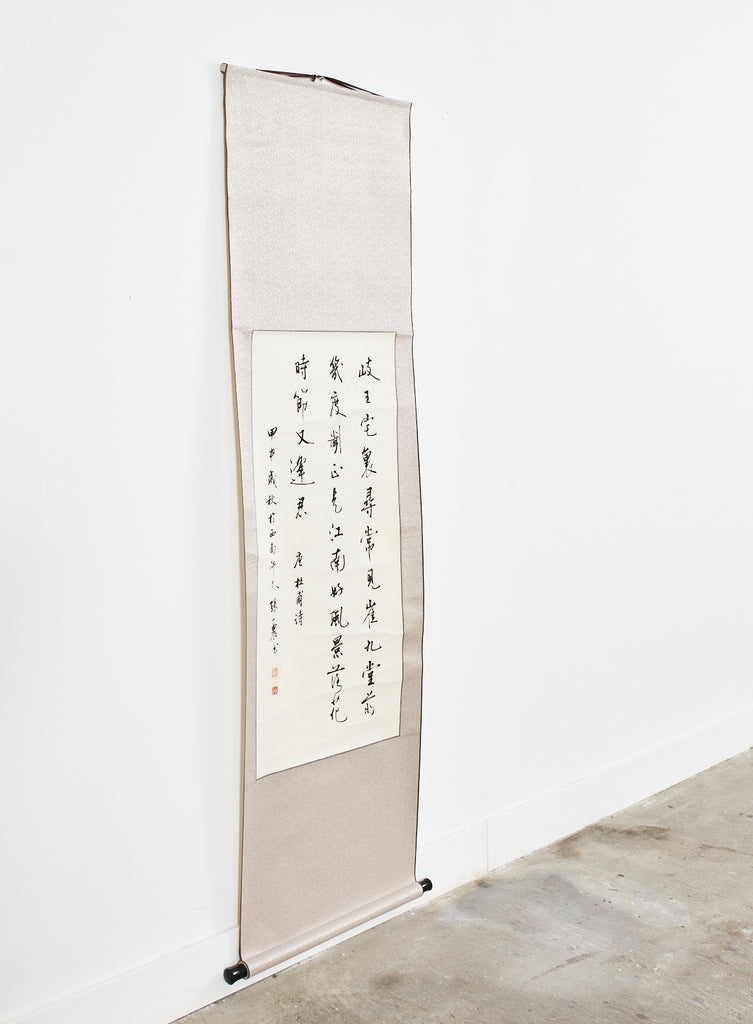 岐王宅裏尋常見崔九堂前
幾度聞正是江南好風景落花
時節又逢君 唐杜甫诗
甲申歲秋於西南师大張書